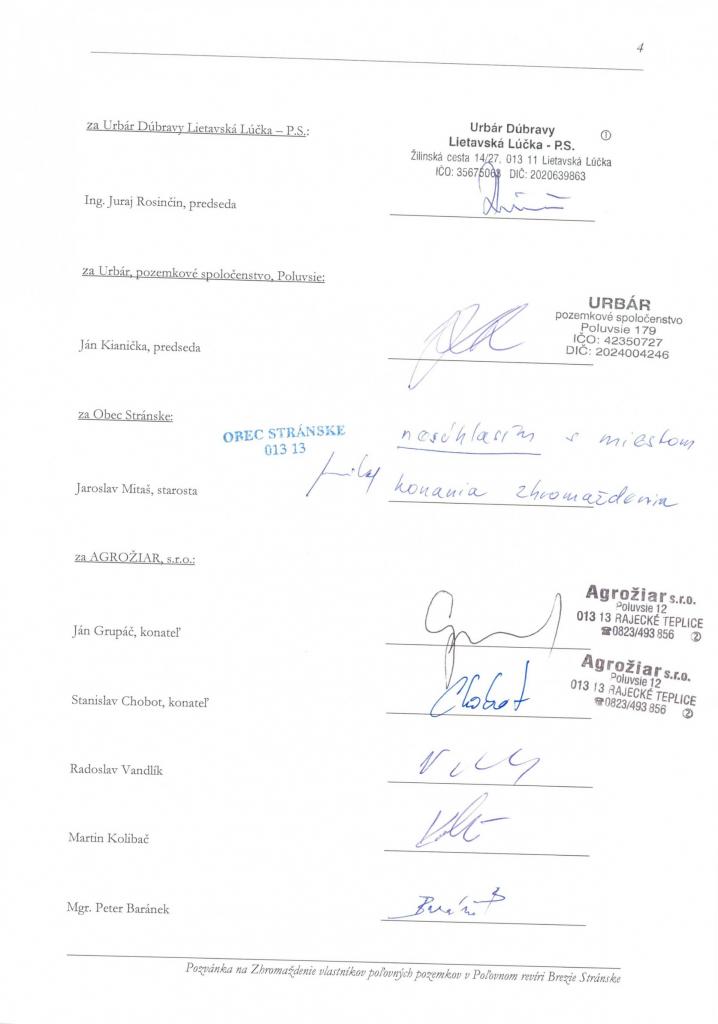 4
za Urbár Dúbravy Lietavská Lúčka – P.S.:
Urbár Dúbravy
Lietavská Lúčka - P.S.
Žilinská cesta 14/27, 013 11 Lietavská Lúčka
IČO: 35675063 DIČ: 2020639863
①
Ing. Juraj Rosinčin, predseda
za Urbár, pozemkové spoločenstvo, Poluvsie:
URBÁR
pozemkové spoločenstvo
Poluvsie 179
IČO: 42350727
DIČ: 2024004246
Ján Kianička, predseda
za Obec Stránske:
OBEC STRÁNSKE
013 13
nesúhlasím s miestom
konania zhromaždenia
Jaroslav Mitaš, starosta
za AGROŽIAR, s.r.o.:
Agrožiar s.r.o.
Poluvsie 12
013 13 RAJECKÉ TEPLICE
☎0823/493 856 ②
Ján Grupáč, konateľ
Agrožiar s.r.o.
Poluvsie 12
013 13 RAJECKÉ TEPLICE
☎0823/493 856 ②
Stanislav Chobot, konateľ
Chobot
Radoslav Vandlík
Martin Kolibač
Mgr. Peter Baránek
Pozvánka na Zhromaždenie vlastníkov poľovných pozemkov v Poľovnom revíri Brezie Stránske